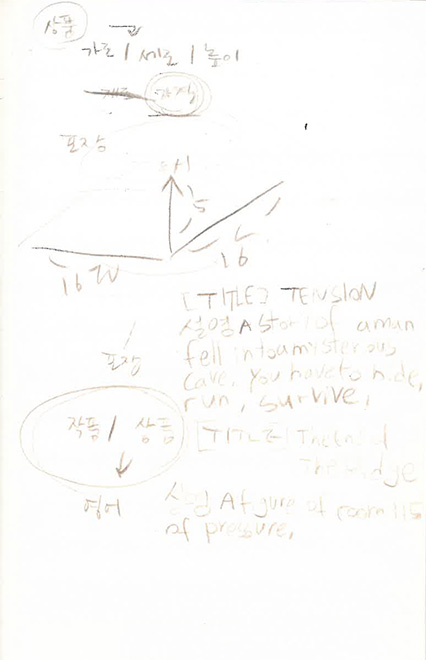 상품
가로 / 세로 / 높이
포장
15
16
16
[TITLE] TENSION
설명 A story of a man
fell into a mysterous
cave. You have to hide,
run, survive.
포장
작품 / 상품
[TITLE] The
The
영어
설명 A figure of room 115
of pressure.